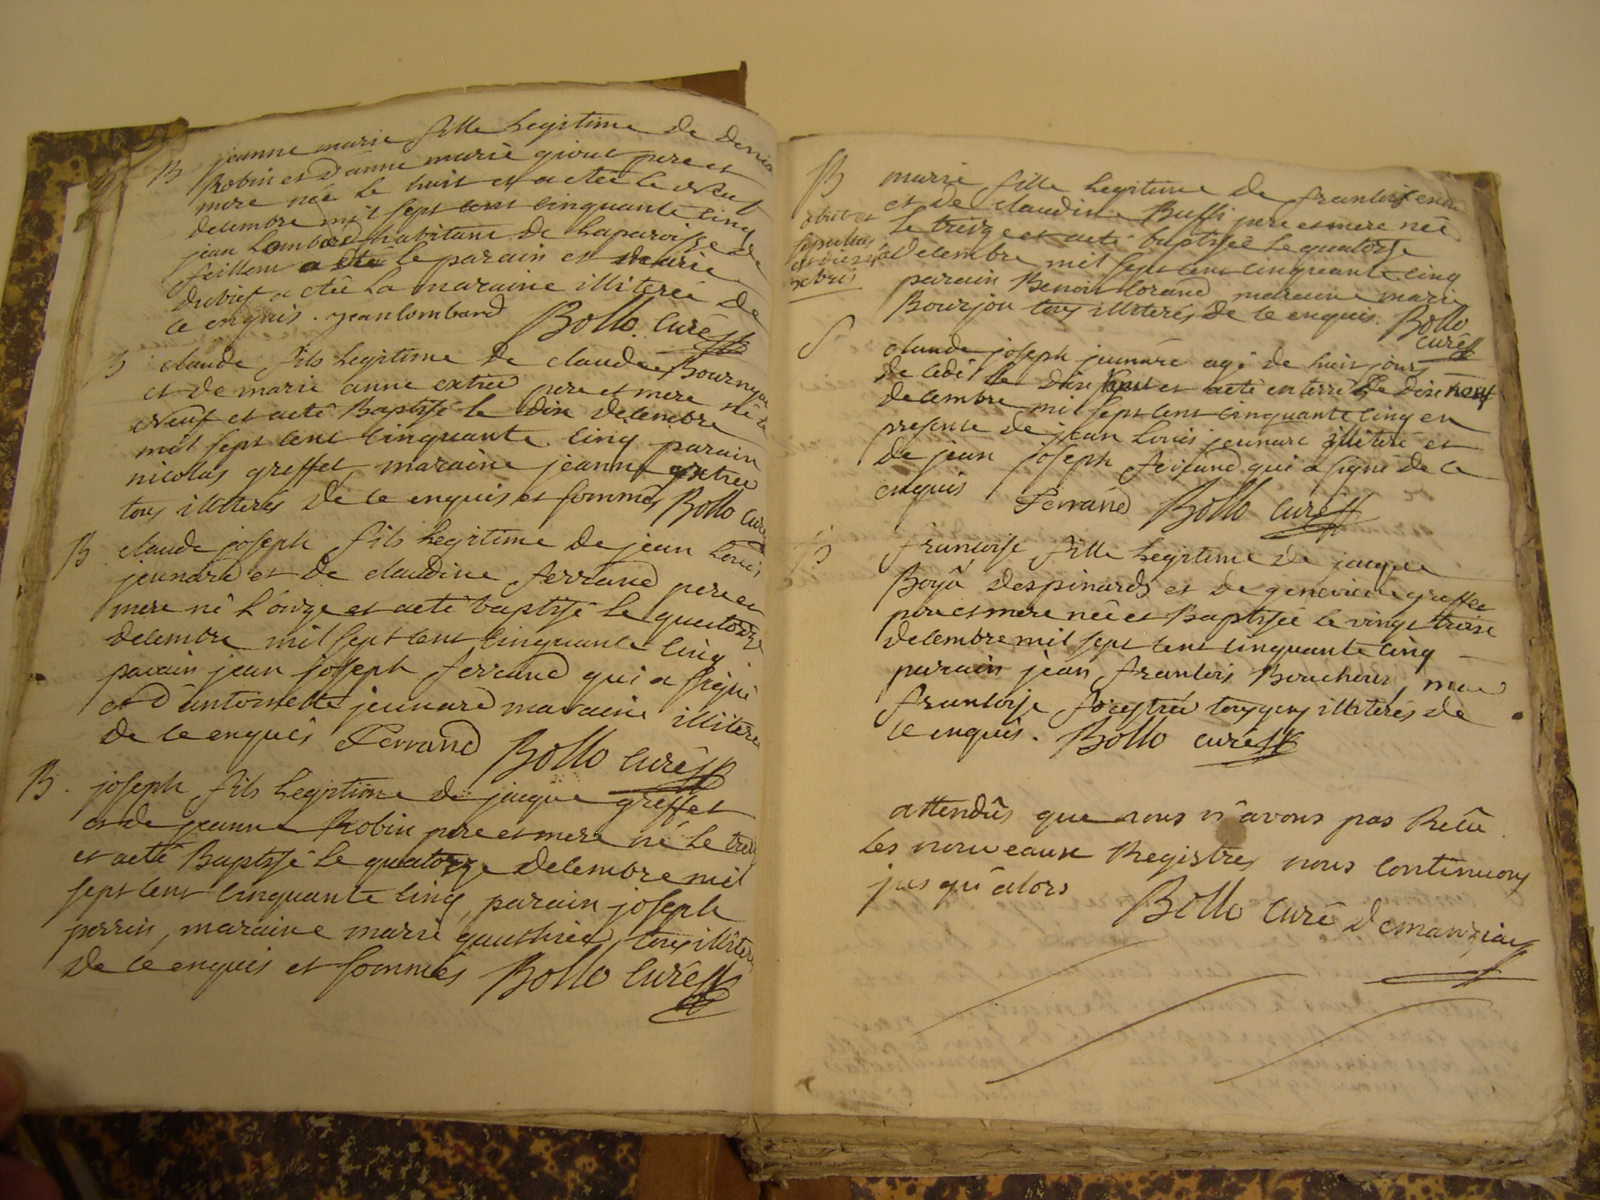 B jeanne marie fille Legitime de denis
Robin et d'anne marie giout pere et
mere née le huit et a etée le neuf
decembre mil sept cent cinquante cinq
jean Lombard habitant de la paroisse de
feillem a été le parain et marie
dubief a etée La maraine illiterée de
ce enquis. jean lombard Bollo curé
B claude fils Legitime de claude Bournyon
et de marie anne extrée pere et mere né le
neuf et a eté Baptisé le dix decembre
mil sept cent cinquante cinq parain
nicolas greffet maraine jeanne extree
tous illiterés de ce enquis et sommés Bollo curé
B claude joseph fils Legitime de jean Louis
jeunare et de claudine ferrand pere et
mere né L'onze et a eté baptisé le quatorze
decembre mil sept cent cinquante cinq
parain jean joseph ferrand qui a signé
et d'antoinette jeunare maraine illitere
de ce enquis Ferrand Bollo curé
B. joseph fils Legitime de jaque greffet
et de jeanne Robin pere et mere né le treize
et a eté Baptisé le quatorze decembre mil
sept cent cinquante cinq, parain joseph
perrin, maraine marie gauthier tous illiterés
de ce enquis et sommés Bollo curé
B marie fille Legitime de francois
et de claudine Buffi pere et mere née
obiit et
le treize et a eté baptisée le quatorze
sepultus
decembre mil sept cent cinquante cinq
parain Benoit lorand maraine marie
Bourjon tous illiterés de ce enquis. Bollo
curé
S claude joseph jeunare agé de huit jours
decedé le dix huit et a eté enterré le dix neuf
decembre mil sept cent cinquante cinq en
presence de jean Louis jeunare illitere et
de jean joseph ferrand qui a signé de ce
enquis Ferrand Bollo curé
B francoise fille Legitime de jaque
Boyâ despinards et de genevieve greffet
pere et mere née et Baptisée le vingt troise
decembre mil sept cent cinquante cinq
parain jean francois Boucheur, mar
francoise forestree tous gens illiterés de
ce enquis. Bollo curé
attendûs que nous n'avons pas Recû
les nouveaux Registres nous continuons
jusqu'alors Bollo curé demanziay